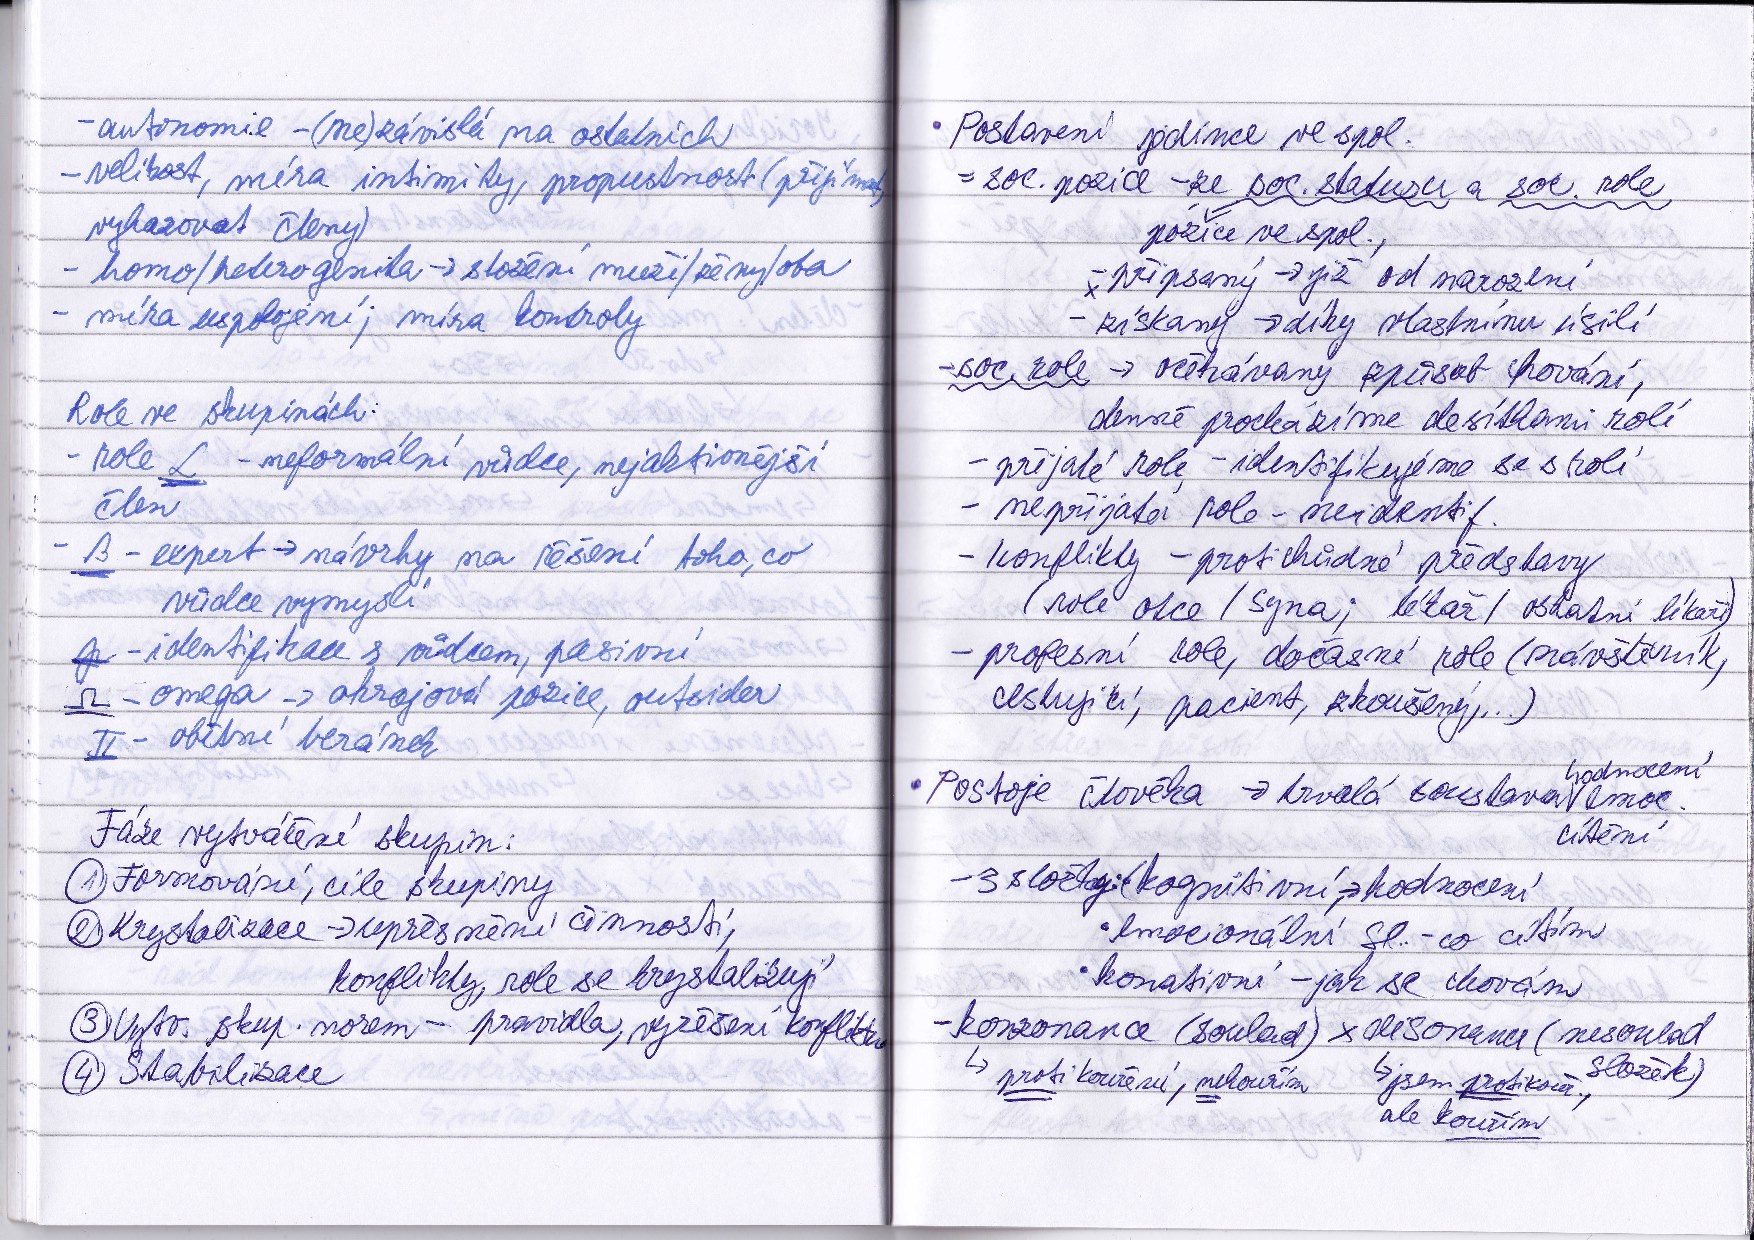 - autonomie - (ne)závislá na ostatních
- velikost, míra intimity, propustnost (přijímat,
vyhazovat členy)
- homo/heterogenita → složení muži/ženy/oba
- míra uspokojení; míra kontroly
Role ve skupinách:
- role L - neformální vůdce, nejaktivnější
člen
- B - expert → návrhy na řešení toho, co
vůdce vymyslí
- identifikace s vůdcem, pasivní
Ω - omega → okrajová pozice, outsider
II - obětní beránek
Fáze vytváření skupin:
① Formování, cíle skupiny
② Krystalizace → upřesnění činností,
konflikty, role se krystalizují
③ Vytv. skup. norem - pravidla, vyřešení konfliktů
④ Stabilizace
• Postavení jedince ve spol.
= soc. pozice - ze soc. statusu a soc. role
pozice ve spol.,
- připsaný → již od narození
x
- získaný → díky vlastnímu úsilí
- soc. role → očekávaný způsob chování,
denně procházíme desítkami rolí
- přijaté role, - identifikujeme se s rolí
- nepřijatá role - neidentif.
- konflikty - protichůdné představy
(role otce / syna; lékař / ostatní lékaři)
- profesní role, dočasné role (návštěvník,
cestující, pacient, zkoušený,...)
hodnocení
• Postoje člověka → trvalá soustava / emoc.
cítění
- 3 složky: (kognitivní, → hodnocení
• emocionální sl. - co cítím
• konativní - jak se chovám
- konzonance (soulad) x disonance (nesoulad
složek)
↳ proti kouření, nekouřím ↳ jsem proti kouř.,
ale kouřím